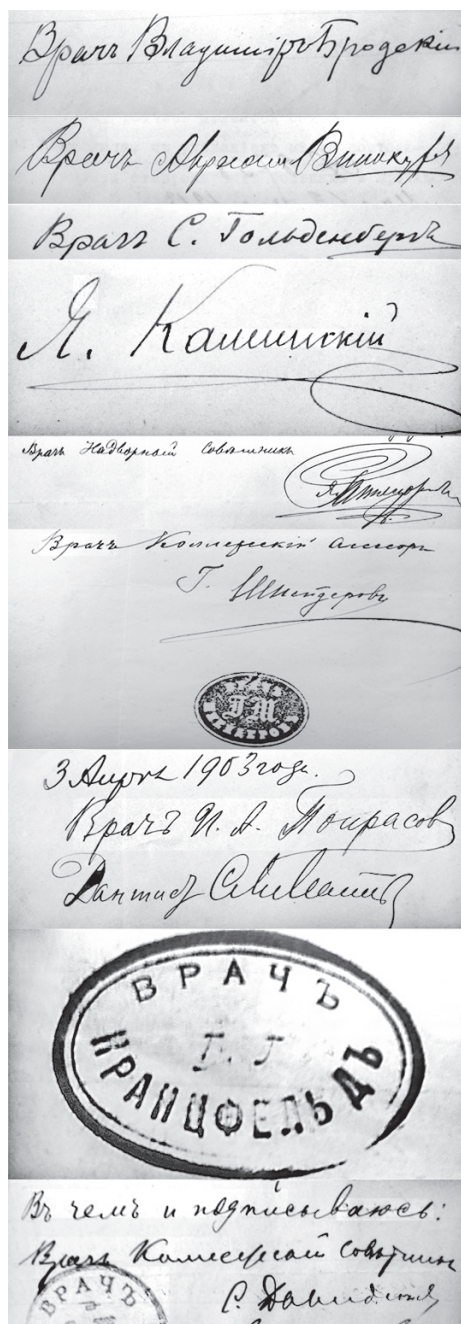 Врачъ Владиміръ Бродскій
Врачъ Авраамъ Винокуръ
Врачъ С. Гольденбергъ
Я. Каминскій
Врачъ Надворный Совѣтникъ
Врачъ Коллежскій Ассесоръ
Г. Шнейдеровъ
ВРАЧЪ
3 Апрѣля 1903 года.
Врачъ
Дантистъ
ВРАЧЪ
Г. Г
КРАНЦФЕЛЬДЪ
Въ чемъ и подписываюсь:
Врачъ Коллежскій Совѣтникъ
С.
ВРАЧЪ